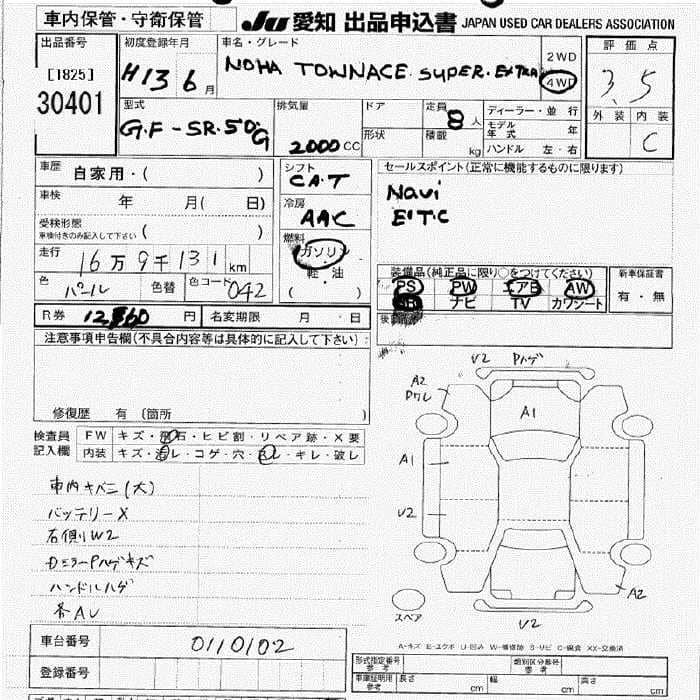 車内保管・守衛保管
JU 愛知 出品申込書 JAPAN USED CAR DEALERS ASSOCIATION
出品番号
[1825]
30401
初度登録年月
H13 6月
車名・グレード
NOHA TOWNACE SUPER. EXTRA
2WD
4WD
評価点
3.5
外装 内装
C
型式
GF-SR50G
排気量
2000 CC
ドア
形状
定員
8人
積載
kg
ディーラー・並行
モデル年式 年
ハンドル 左・右
車歴 自家用・( )
車検 年 月( 日)
受検形態
車検付きのみ記入して下さい ( )
走行
16万9千131km
色 パール
色替
色コード 042
シフト
CAT
冷房
AAC
燃料
ガソリン
軽・油
( )
セールスポイント(正常に機能するものに限ります)
Navi
ETC
装備品(純正品に限り○をつけてください)
PS PW エアB AW
ナビ TV カワシート
新車保証書
有・無
後
R券 円 名変期限 月 日
注意事項申告欄(不具合内容等は具体的に記入して下さい)
修復歴 有 (箇所 )
検査員
記入欄
FW キズ・飛石・ヒビ割・リペア跡・X要
内装 キズ・・コゲ・穴・・キレ・破レ
車内キバミ(大)
バッテリーX
右側W2
DミラーPハゲキズ
ハンドルハゲ
各AU
V2 Pハゲ
A2
A1
A1
V2
A2
V2
スペア
A-キズ E-エクボ U-凹み W-補修跡 S-サビ C-腐食 XX-交換済
車台番号 0110102
登録番号
形式指定番号
参考
類別区分番号
参考
車庫証明用
参考
長さ cm 幅 cm 高さ cm